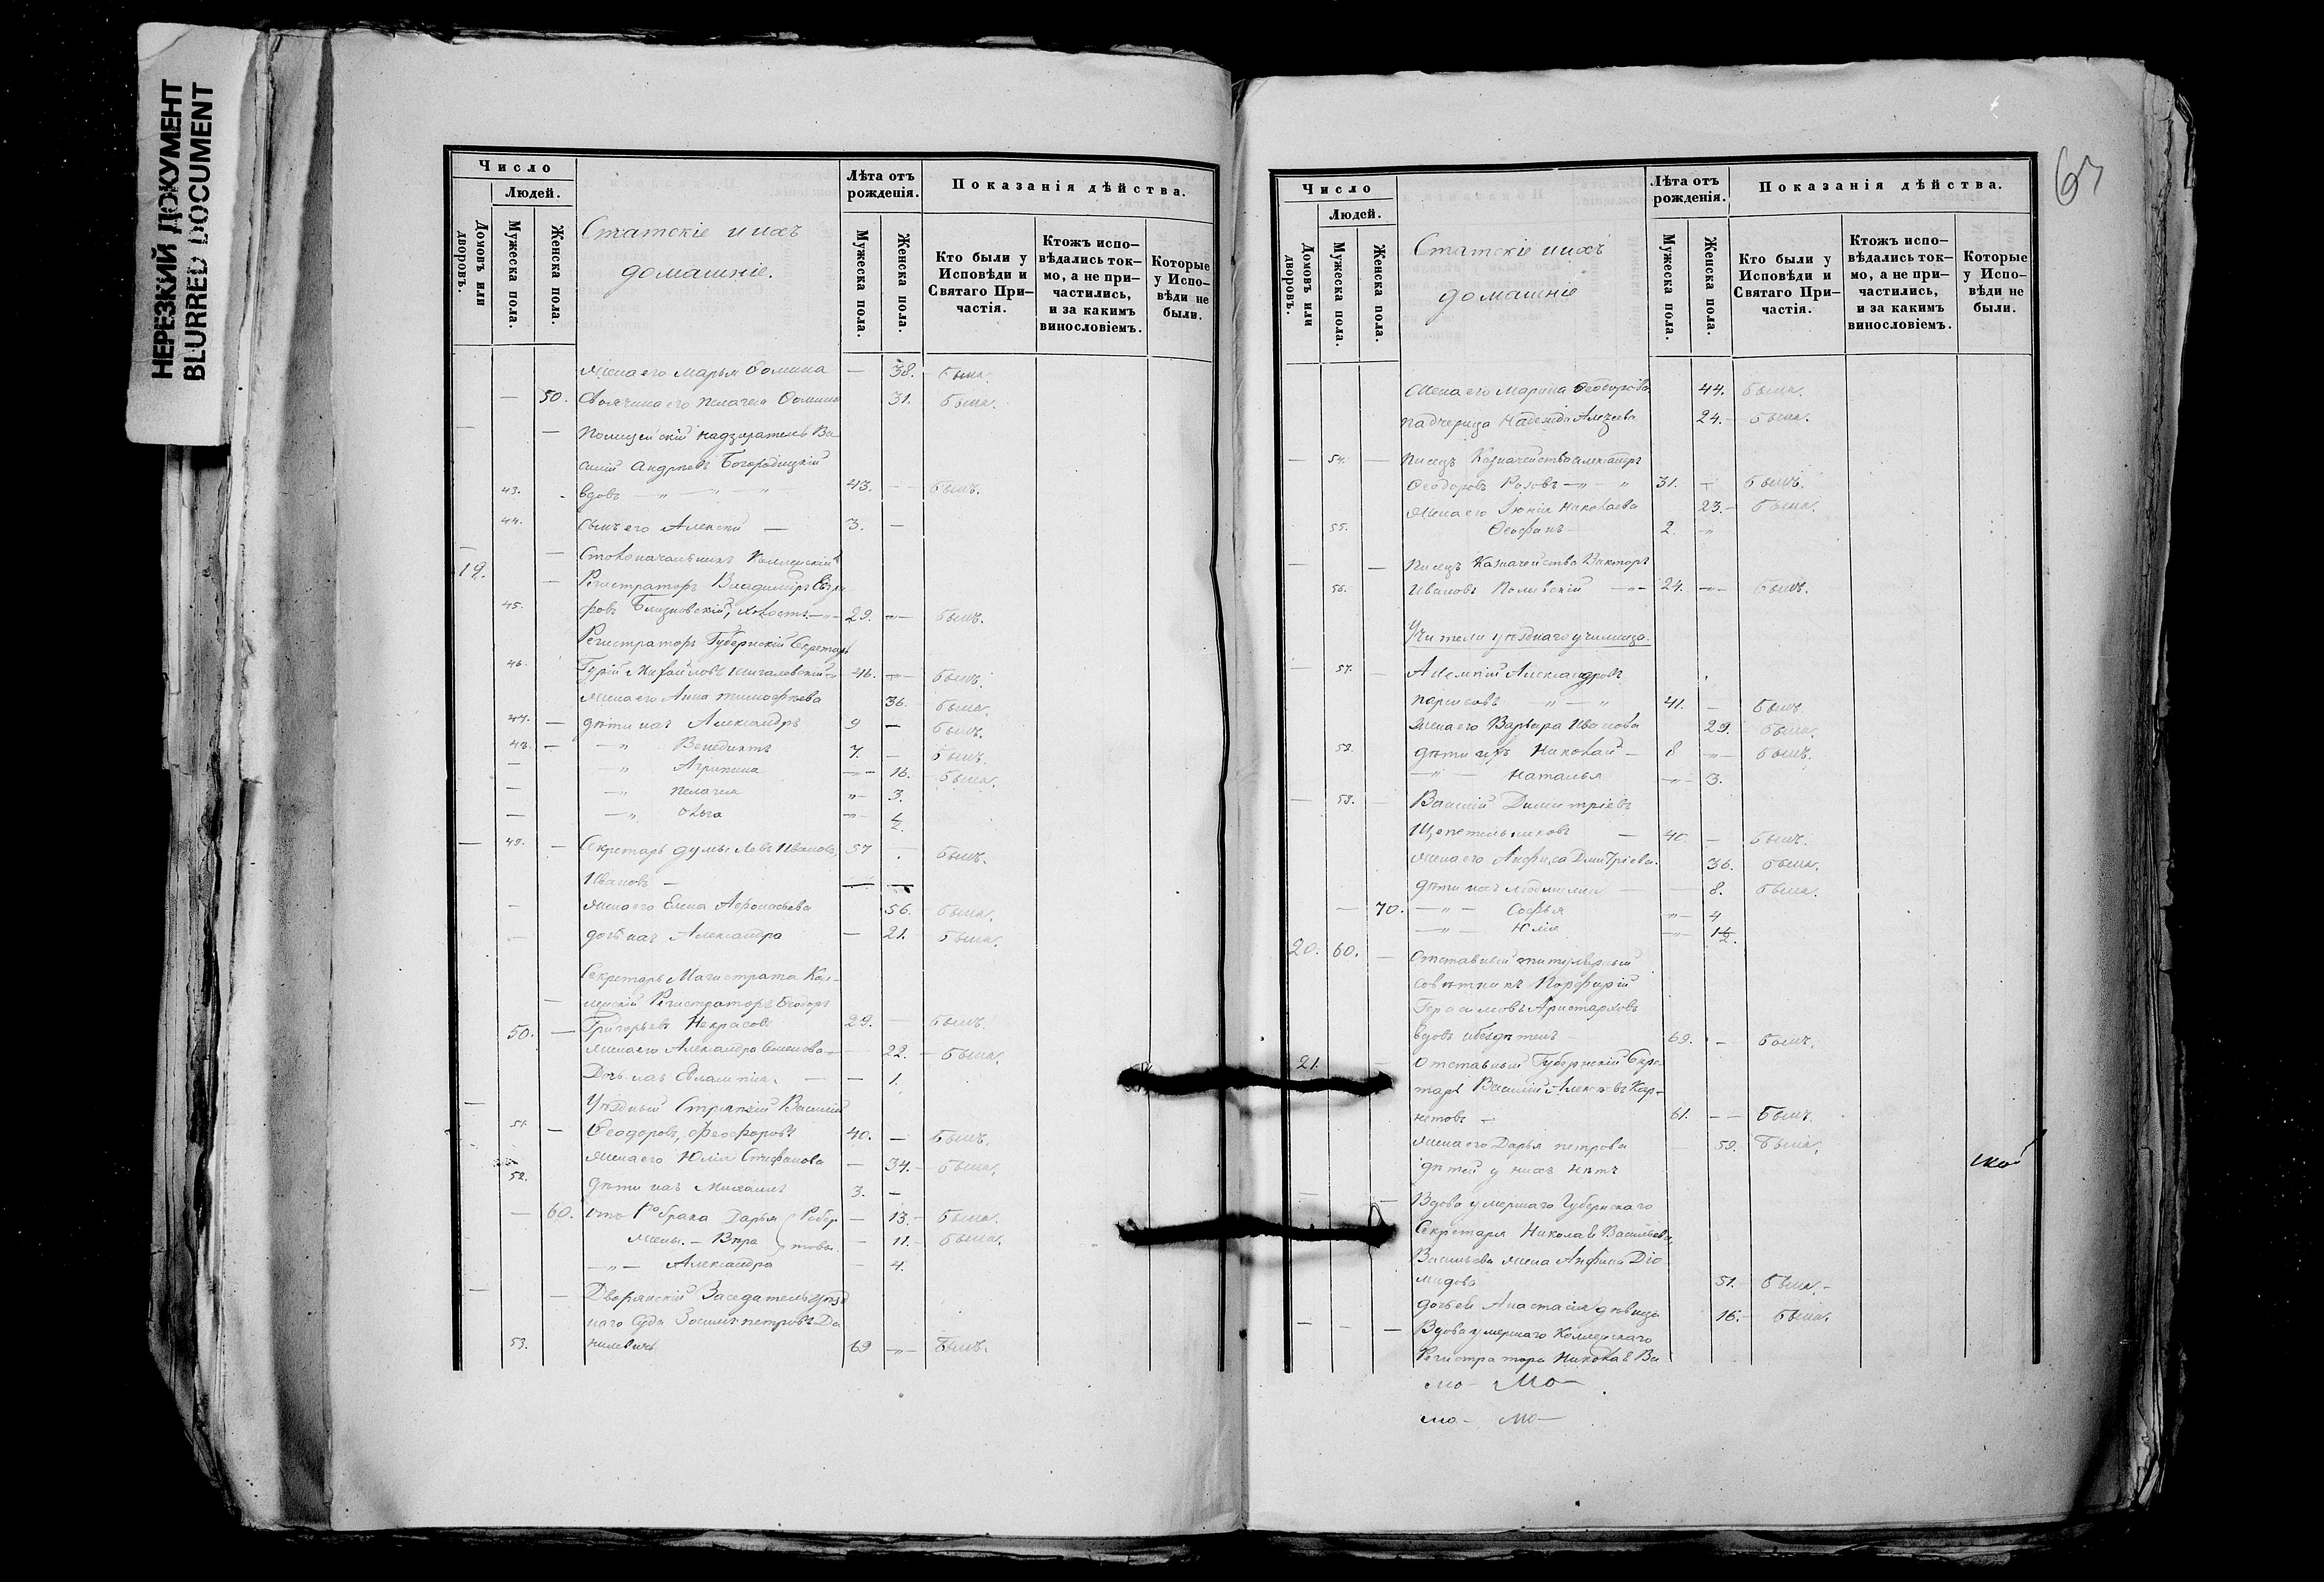 НЕРЕЗКИЙ ДОКУМЕНТ
BLURRED DOCUMENT
Число
Людей.
Домовъ или дворовъ.
Мужеска пола.
Женска пола.
Статскіе и ихъ
домашніе.
Лѣта отъ рожденія.
Мужеска пола.
Женска пола.
Показанія дѣйства.
Кто были у Исповѣди и Святаго При-частія.
Ктожъ испо-вѣдались ток-мо, а не при-частились, и за какимъ винословіемъ.
Которые у Испо-вѣди не были.
Жена его Марья Фомина — 38. была.
— 50. Своячина его Пелагея Фомина 31. была.
Полицейскій надзиратель Ва
силій Андреевъ Богородицкій
43. вдовъ — „ — „ — „ 43. — была
44. Сынъ его Алексѣй — 3. —
Столоначальникъ Коллежскій
19. Регистраторъ Владиміръ
45. Близновскій, холостъ 29. — былъ.
Регистраторъ Губернскій Секретарь
46. Гурій Михайловъ 46. — былъ.
Жена его Анна Тимофѣева 36. была.
47. — дѣти ихъ Александръ 9 — былъ.
48. — — „ Венедиктъ 7. — былъ.
— — „ Агрипина — 16. была.
— — „ Пелагея „ 3.
— — „ Ольга „ 1/2.
— 49. — Секретарь думы Левъ Ивановъ, 57 . былъ.
Ивановъ —
— Жена его Елена Афонасьева 56. была.
— дочь ихъ Александра — 21. была.
Секретарь Магистрата Кол-
лежскій Регистраторъ Ѳеодоръ
50. — Григорьевъ Некрасовъ 29. — былъ.
Жена его Александра Семенова — 22. — была.
Дочь ихъ Евлампія. — — 1.
Уѣздный Стряпчій Василій
51. — Ѳеодоровъ, 40. — былъ.
Жена его Юлія Стефанова — 34. — была.
52. дѣти ихъ Михаилъ 3. —
— 60. отъ 1го брака Дарья — 13. — была.
жены. — Вѣра — 11. — была.
— „ — Александра — 4.
Дворянскій Засѣдатель Уѣзд
наго Суда Зосимъ Петровъ Да
53. нилевичъ 69 — „ — былъ.
67
Число
Людей.
Домовъ или дворовъ.
Мужеска пола.
Женска пола.
Статскіе и ихъ
домашніе
Лѣта отъ рожденія.
Мужеска пола.
Женска пола.
Показанія дѣйства.
Кто были у Исповѣди и Святаго При-частія.
Ктожъ испо-вѣдались ток-мо, а не при-частились, и за какимъ винословіемъ.
Которые у Испо-вѣди не были.
Жена его Марина Ѳеодорова 44. была.
Падчерица Надежда Алексеева 24. — была.
— 54. — Писецъ Казначейства Александръ
Ѳеодоровъ Розовъ — „ — „ 31. — былъ.
Жена его Юнія Николаева 23. — была.
55. Ѳеофанъ — 2. „
— — Писецъ Казначейства Викторъ
56. Ивановъ Полинскій — „ — 24. — „ — былъ.
Учители уѣзднаго училища.
— 57. — Алексѣй Александровъ
41. — былъ.
Жена его Варвара Иванова 29. была.
58. дѣти ихъ Николай — 8 — „ — былъ.
— „ — Наталья — „ — 3.
— 59. — Василій Димитріевъ
Щепетильниковъ — 40. — былъ.
Жена его Анфиса Дмитріева. 36. была.
дѣти ихъ Людмила — — 8. была.
— 70. — „ — Софья — „ — 4
— „ — Юлія — „ — 1 1/2.
20. 60. — Отставный титулярный
совѣтникъ Порфирій
Герасимовъ Аристарховъ
вдовъ и бездѣтенъ — 69. — былъ.
21. — Отставный Губернскій Секре-
тарь Василій Алексѣевъ Кор-
нетовъ — 61. — — былъ.
Жена его Дарья Петрова — 59. была.
дѣтей у нихъ нѣтъ
— — Вдова умершаго Губернскаго
Секретаря Николая Васильева,
Васильева жена Анфиса Діо
мидова 51. — была. —
дочь ея Анастасія дѣвица 16. — была.
— — — Вдова умершаго Коллежскаго
Регистратора Николая Ва